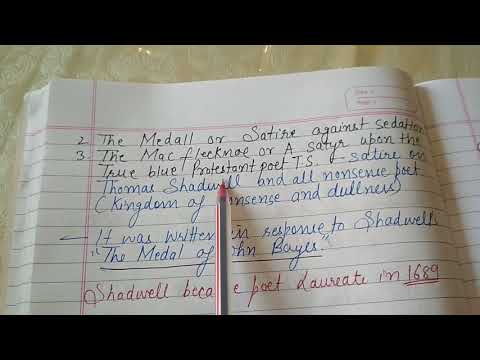 2. The Medall or Satire against sedation
3. The Mac flecknoe or A satyr upon the
True blue Protestant poet T.S. satire on
Thomas Shadwell and all nonsense poet
(Kingdom of nonsense and dullness)
It was written in response to Shadwells
"The Medal of John Bayes"
Shadwell became poet Laureate in 1689